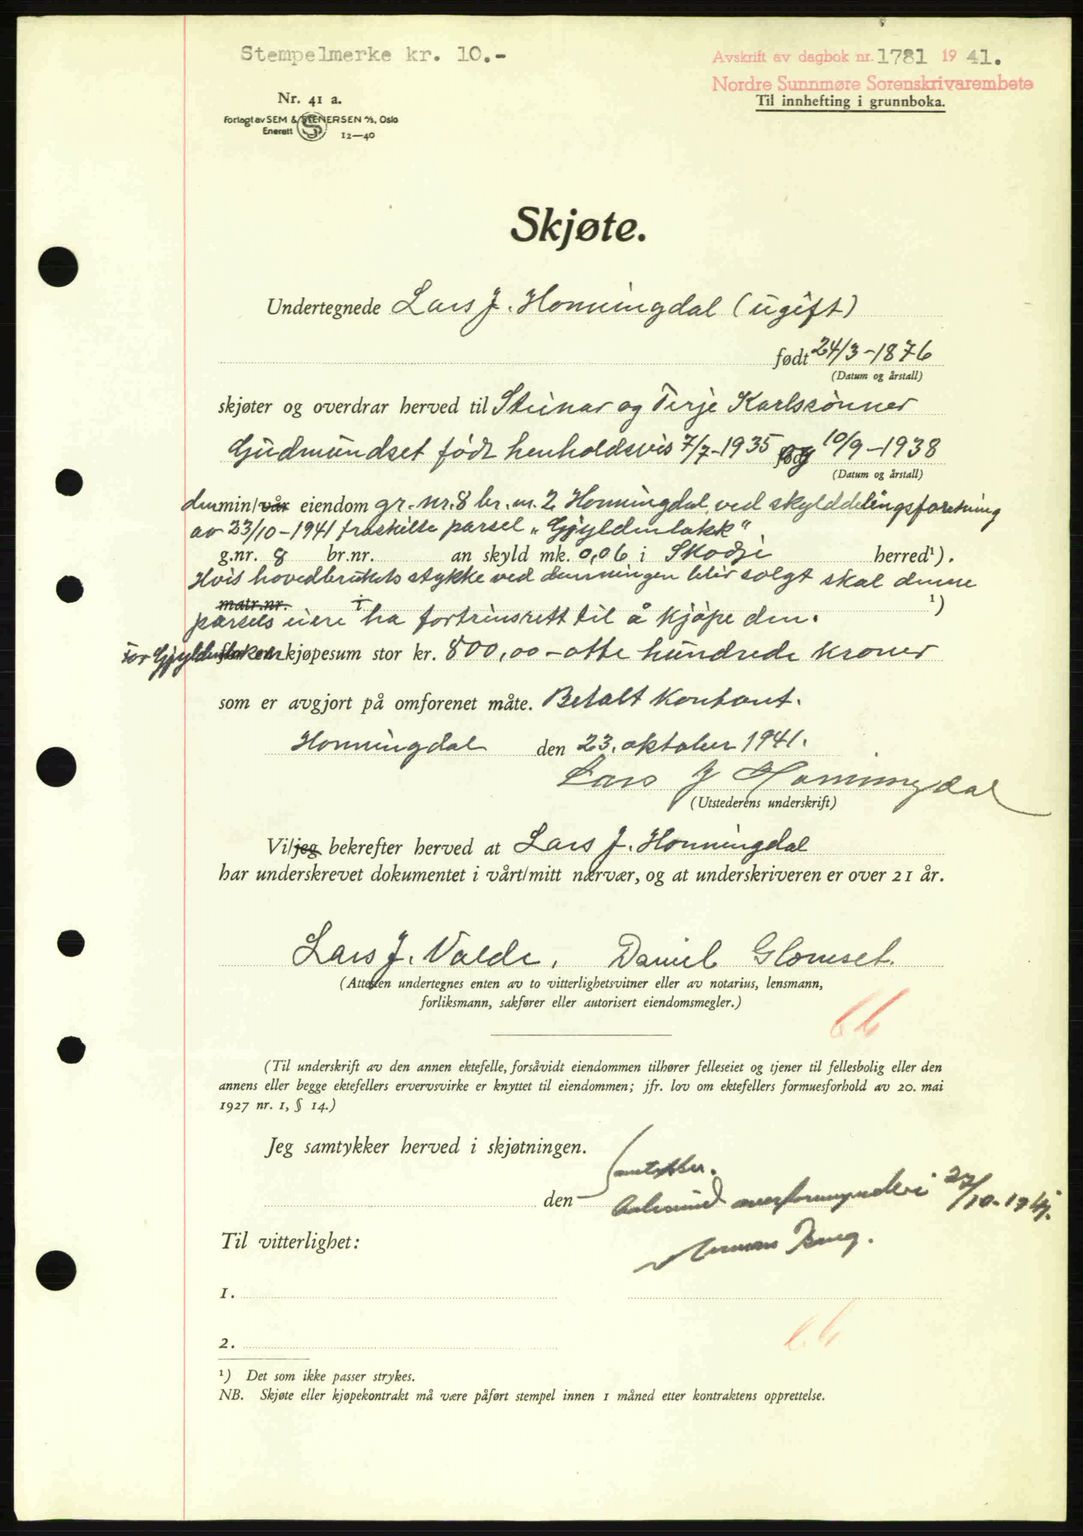 Stempelmerke kr. 10.-
Avskrift av dagbok nr. 1781 1941.
Nordre Sunnmøre Sorenskrivarembete
Til innhefting i grunnboka.
Nr. 41 a.
Forlagt av SEM & STENERSEN A/S, Oslo
Enerett S 12—40
Skjøte.
Undertegnede Lars J. Honningdal (ugift)
født 24/3-1876
(Datum og årstall)
skjøter og overdrar herved til Steinar og Terje Karlssønner
Gudmundset født henholdsvis 7/7-1935 og 10/9-1938
(Datum og årstall)
den min/vår eiendom gr. nr. 8 br. nr. 2 Honningdal, ved skylddelingsforretning
av 23/10-1941 fraskilte parsel „Gjyldenlakk"
g.nr. 8 br.nr. an skyld mk. 0,06 i Skodje herred¹).
Hvis hovedbrukets stykke ved denningen blir solgt skal denne
matr.nr. i ¹)
parsels eiere ha fortrinsrett til å kjøpe den.
for Gjyldenlakk en kjøpesum stor kr. 800,00 - otte hundrede kroner
som er avgjort på omforenet måte. Betalt kontant.
Honningdal den 23. oktober 1941.
Lars J Honningdal
(Utstederens underskrift)
Vi/jeg bekrefter herved at Lars J. Honningdal
har underskrevet dokumentet i vårt/mitt nærvær, og at underskriveren er over 21 år.
Lars J. Valde, Daniel Glomset.
(Attesten undertegnes enten av to vitterlighetsvitner eller av notarius, lensmann,
forliksmann, sakfører eller autorisert eiendomsmegler.)
(Til underskrift av den annen ektefelle, forsåvidt eiendommen tilhører felleseiet og tjener til fellesbolig eller den
annens eller begge ektefellers ervervsvirke er knyttet til eiendommen; jfr. lov om ektefellers formuesforhold av 20. mai
1927 nr. 1, § 14.)
Jeg samtykker herved i skjøtningen.
Samtykker.
den Aalesund overformynderi 27/10-1941.
Til vitterlighet:
1.
2.
¹) Det som ikke passer strykes.
NB. Skjøte eller kjøpekontrakt må være påført stempel innen 1 måned etter kontraktens opprettelse.